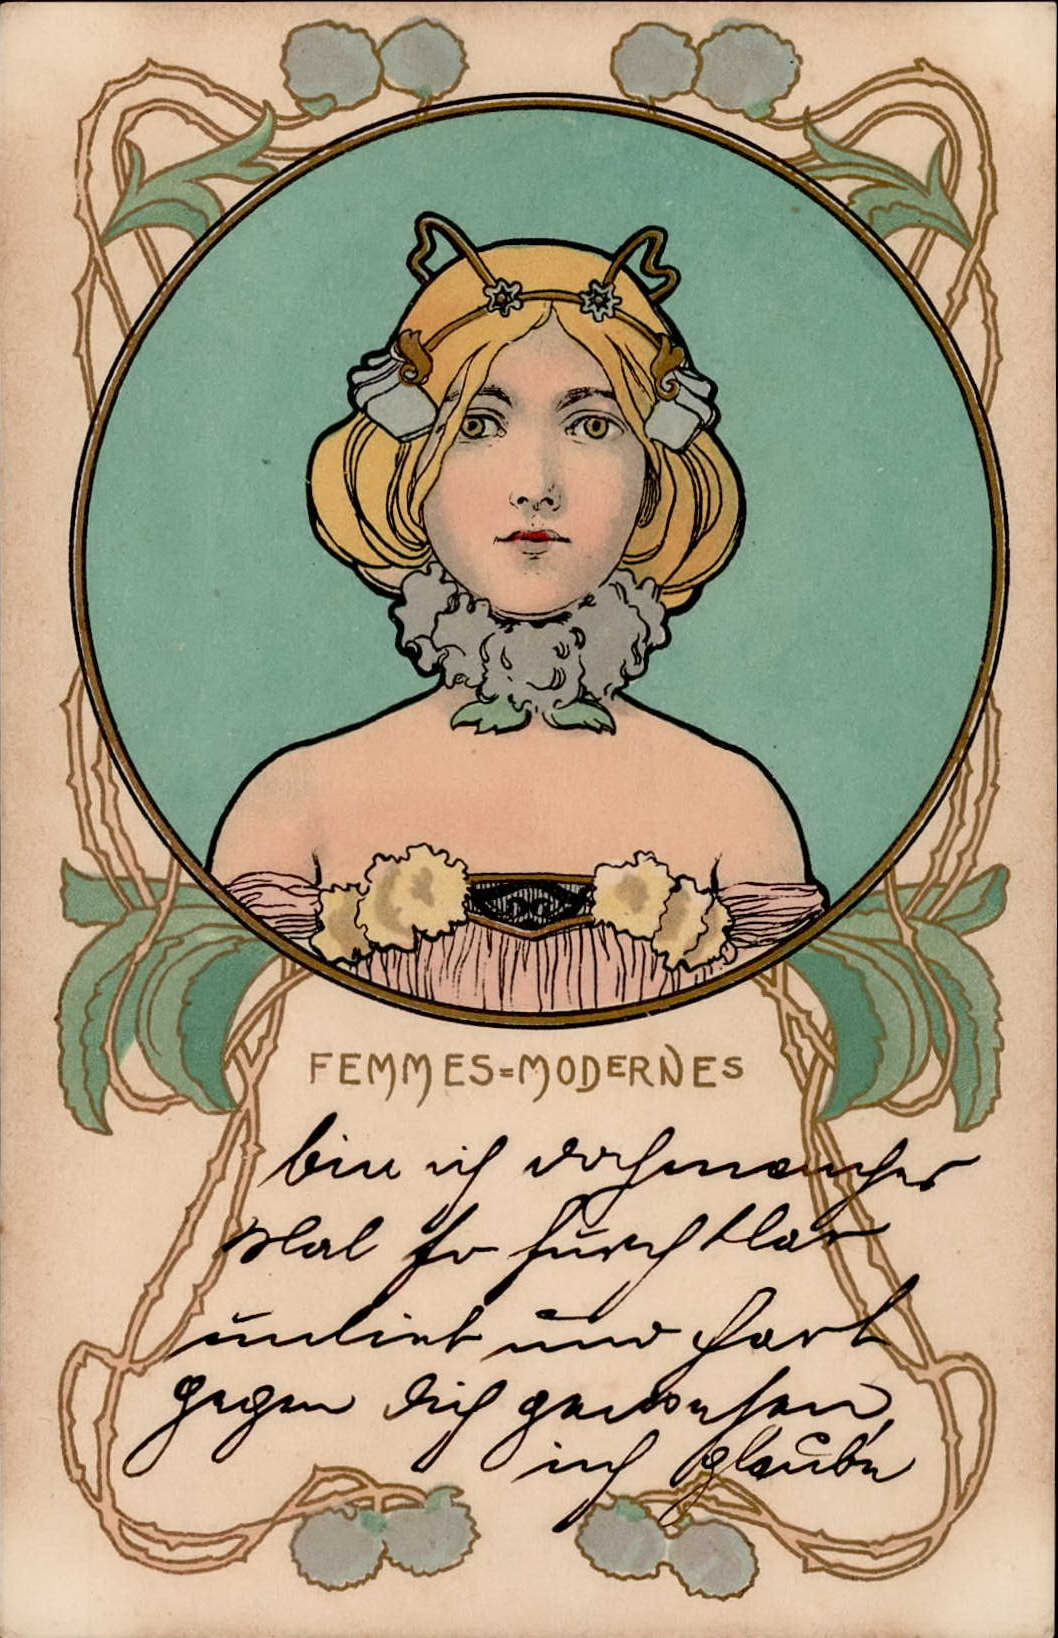 FEMMES=MODERNES
bin ich doch mancher
Mal so furchtbar
unlieb und hart
gegen dich gewesen,
ich glaube